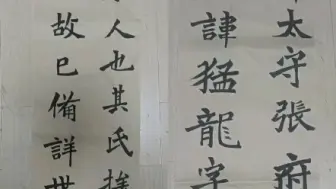 太守張府
諱猛龍字
人也其氏
故已備詳世